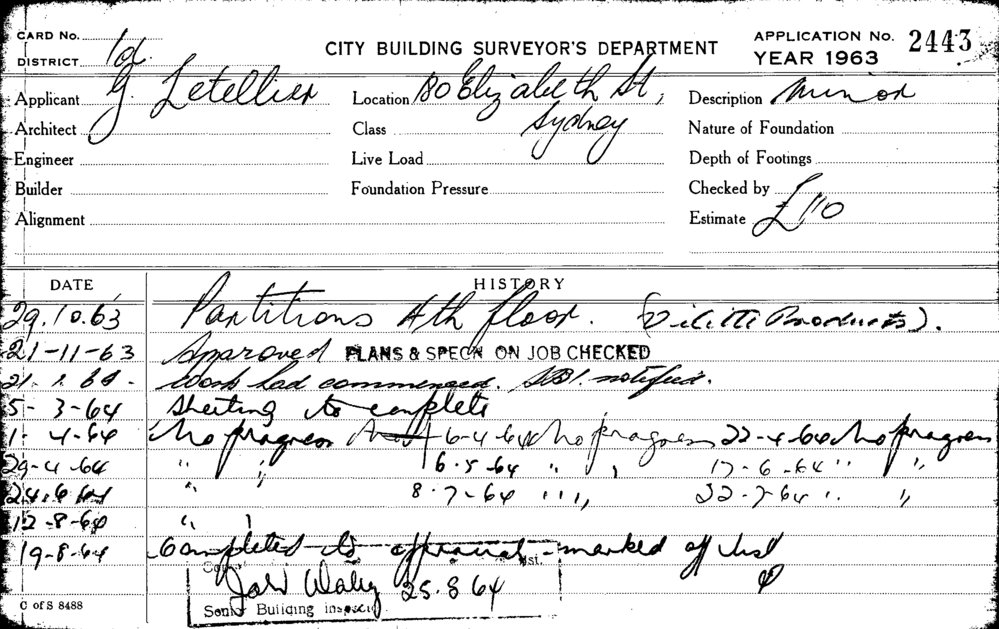 CARD No.
DISTRICT
CITY BUILDING SURVEYOR'S DEPARTMENT
APPLICATION No. 2443
YEAR 1963
Applicant G. Letellier
Location 180 Elizabeth St,
Sydney
Description Minor
Architect
Class
Nature of Foundation
Engineer
Live Load
Depth of Footings
Builder
Foundation Pressure
Checked by
Alignment
Estimate £110
DATE HISTORY
29.10.63 Partitions 4th floor. (Products).
21-11-63 Approved PLANS & SPECN ON JOB CHECKED
21.1.64. Work had commenced. notified.
5-3-64 Sheeting to complete
1-4-64 No progress 6-4-64 No progress 22-4-64 No progress
29-4-64 " " 6.5.64 " " 17-6-64 " "
24.6.64 " " 8.7-64 " " 22-7-64 " "
12-8-64 " "
19-8-64 Completed to approval - marked off list
25.8.64
Senior Building Inspector
C of S 8488